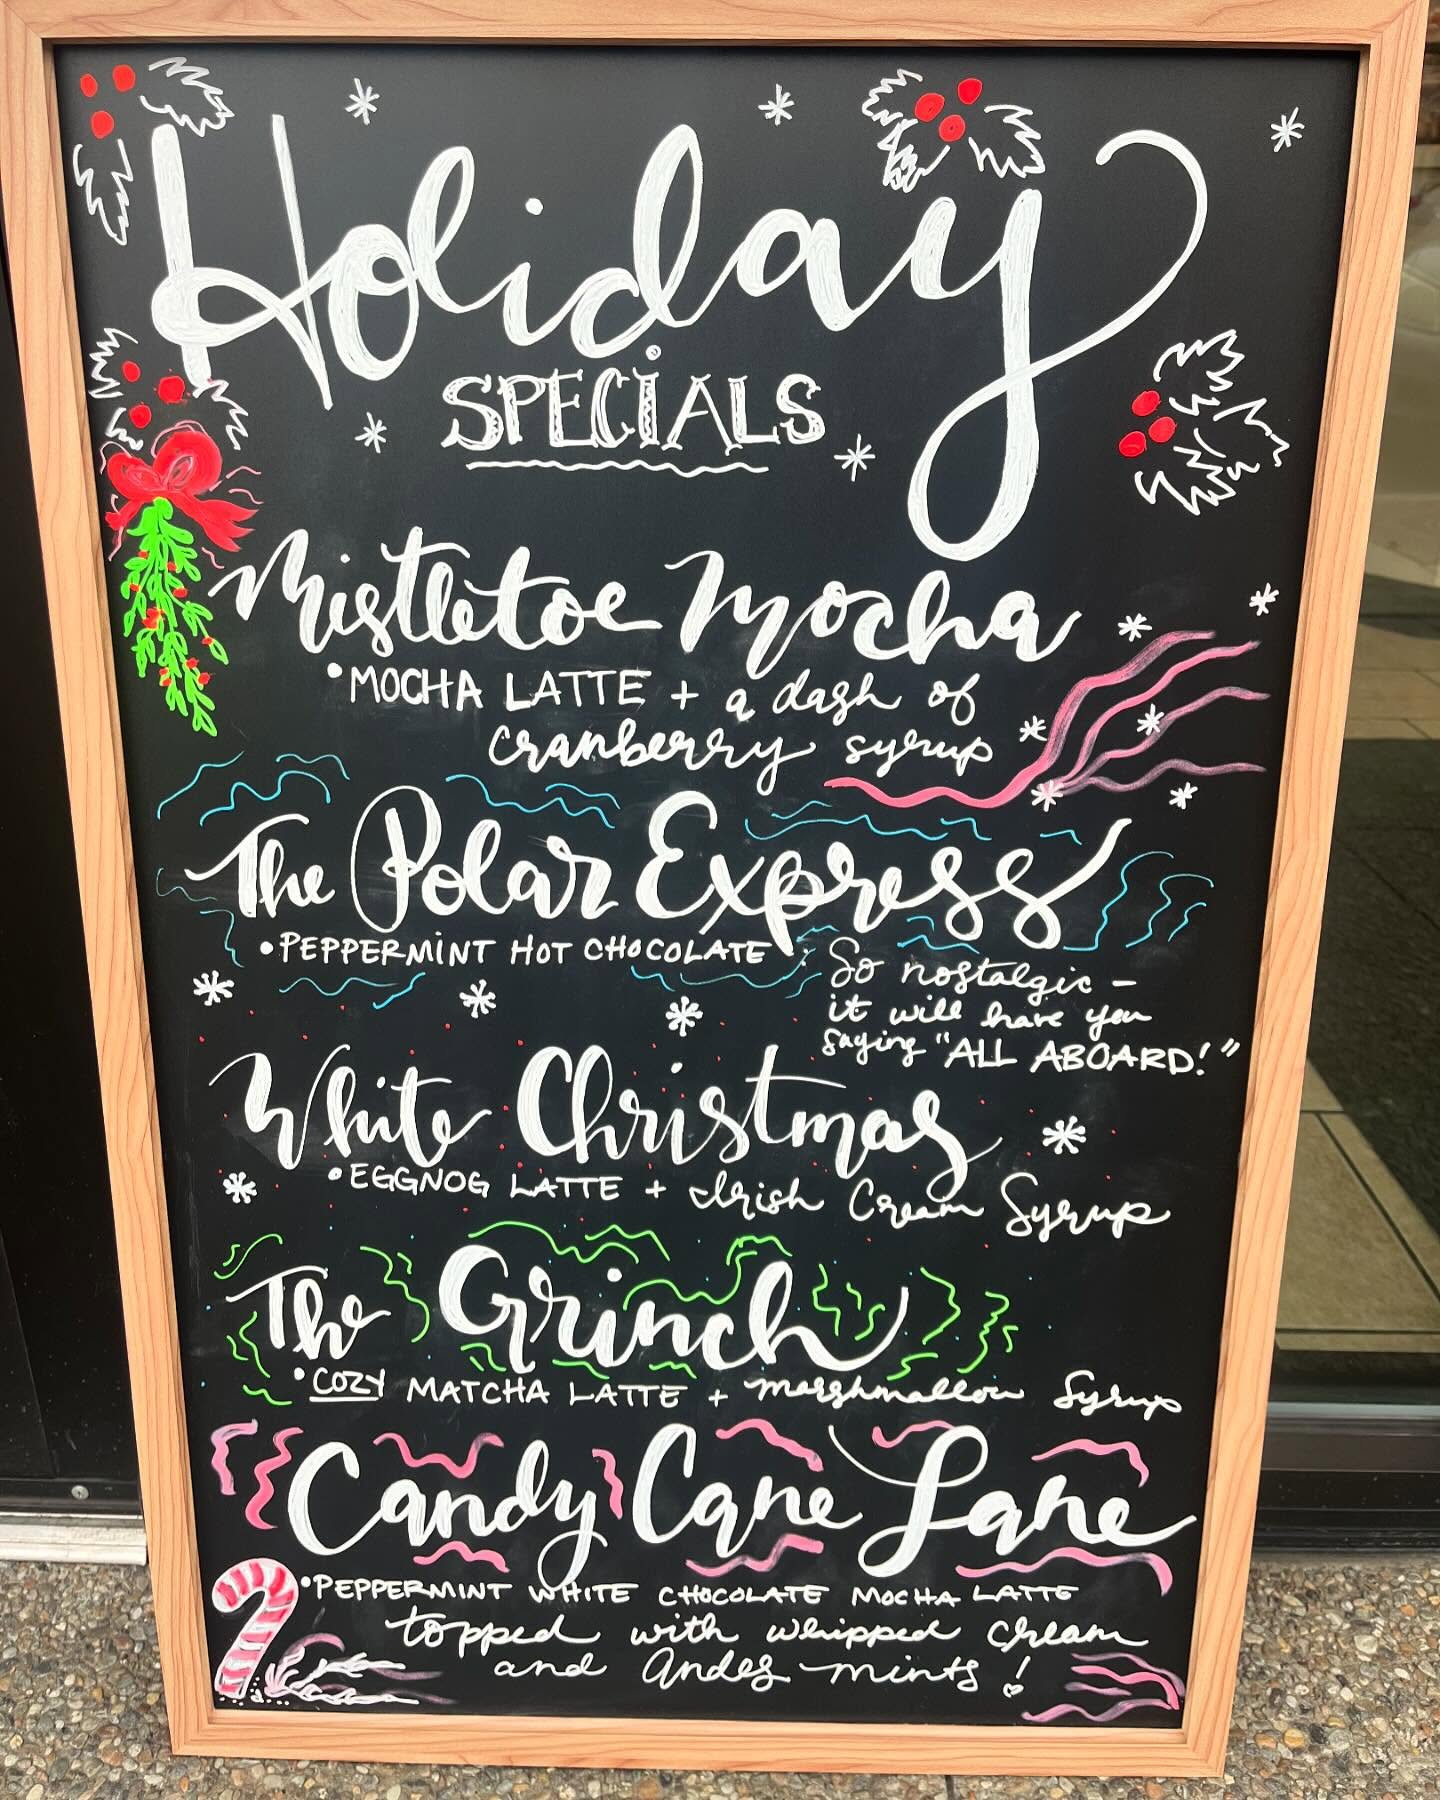 Holiday
SPECIALS
Mistletoe Mocha
• MOCHA LATTE + a dash of
cranberry syrup
The Polar Express
• PEPPERMINT HOT CHOCOLATE
So nostalgic -
it will have you
saying "ALL ABOARD!"
White Christmas
• EGGNOG LATTE + Irish Cream Syrup
The Grinch
• COZY MATCHA LATTE + marshmallow Syrup
Candy Cane Lane
• PEPPERMINT WHITE CHOCOLATE MOCHA LATTE
topped with whipped cream
and Andes mints!